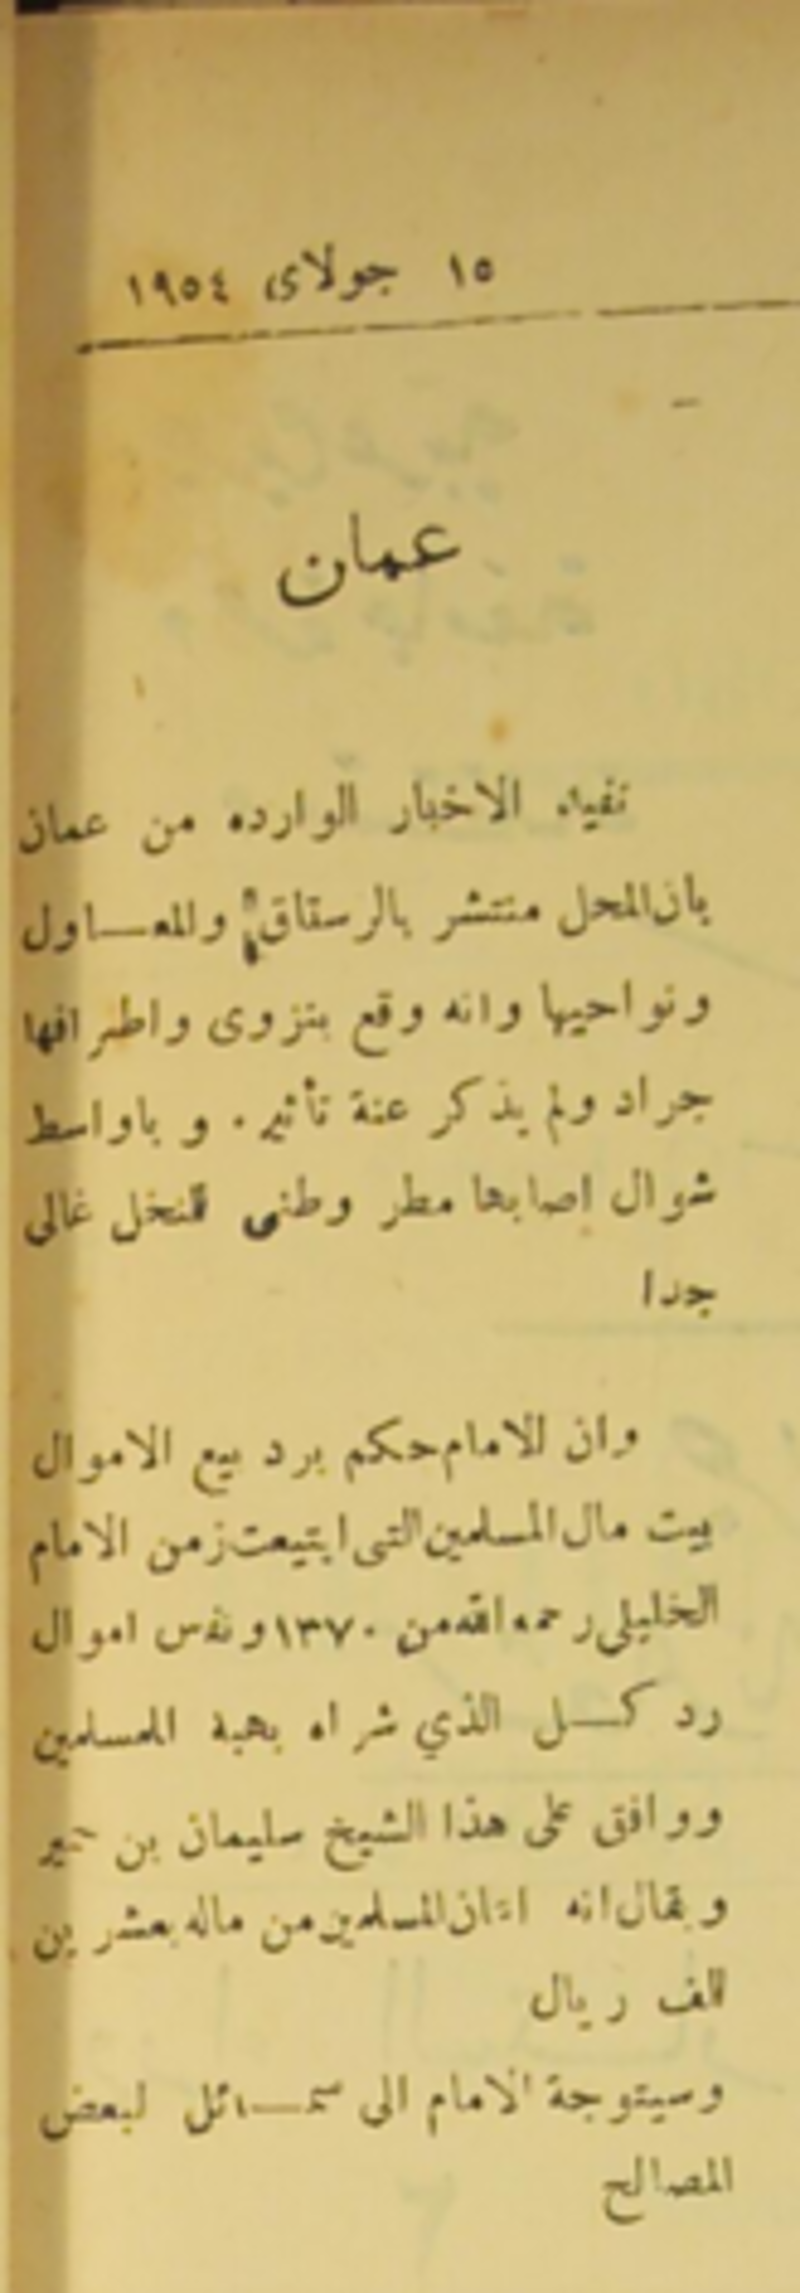 ١٥ جولاى ١٩٥٤
عمان
تفيد الاخبار الوارده من عمان
بان المحل منتشر بالرستاق والمعـاول
ونواحيها وانه وقع بنزوى واطرافها
جراد ولم يذكر عنة تأثير . و باواسط
شوال اصابها مطر وطنى النخل غالى
جدا
وان الامام حكم برد بيع الاموال
بيت مال المسلمين التى ابتيعت زمن الامام
الخليلى رحمه الله من ١٣٧٠ ونفس اموال
رد كـل الذي شراه بهبة المسلمين
ووافق على هذا الشيخ سليمان بن حمير
ويقال انه المسلمين من ماله بعشرين
الف ريال
وسيتوجة الامام الى سمـائل لبعض
المصالح